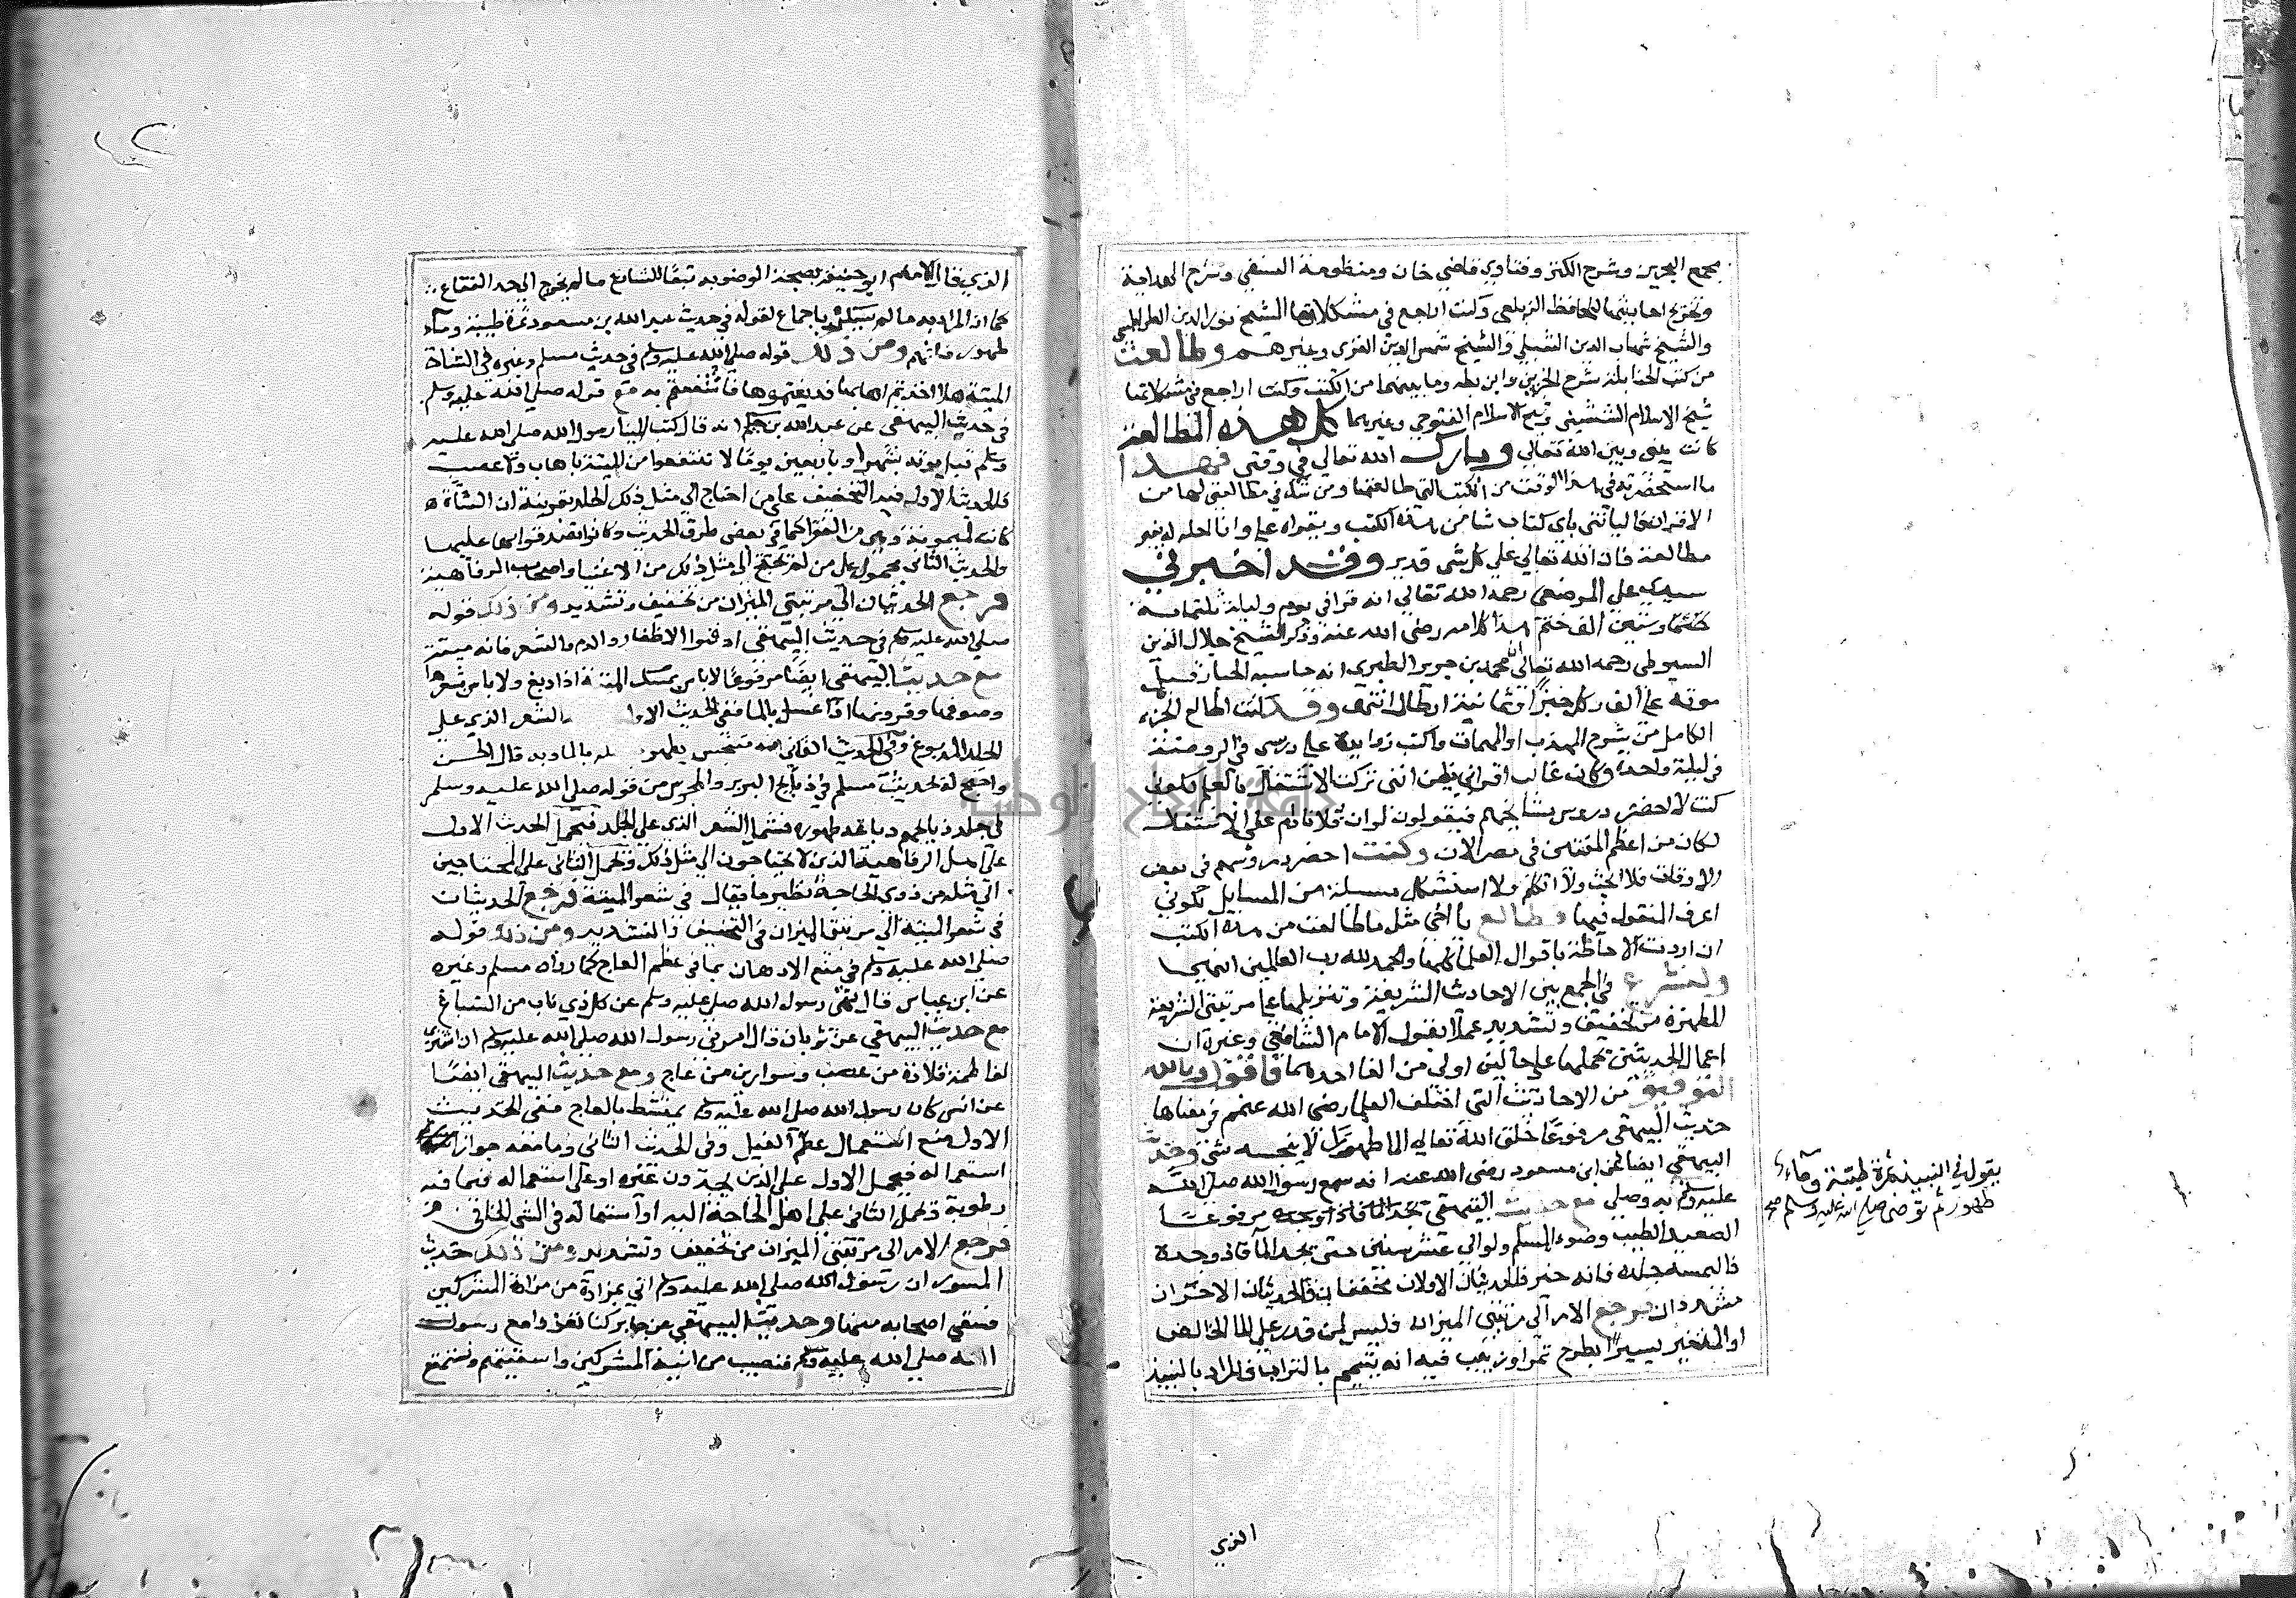 مجمع البحرين وشرح الكنز وفتاوي قاضي خان ومنظومة النسفي وشرح الهداية
وتخريج احاديثها للحافظ الزيلعي وكنت اراجع في مشكلاتها الشيخ نور الدين الطرابلسي
والشيخ شهاب الدين الشبلي والشيخ شمس الدين الغزي وغيرهم وطالعت
من كتب الحنابلة شرح الخرقي وابن بطه وما بينهما من الكتب وكنت اراجع في مشكلاتها
شيخ الاسلام الششيني وشيخ الاسلام الفتوحي وغيرهما كل هذه المطالعة
كانت بيني وبين الله تعالى وبارك الله تعالي في وقتي فهذا
ما استحضرته في هذا الوقت من الكتب التي طالعتها ومن شك في مطالعتي لها من
الاقران فاليأتني باي كتاب شا من هذه الكتب ويقراه علي وانا احله له بغير
مطالعة فان الله تعالي علي كل شي قدير وقد اخبرني
سيدي علي المرصفي رحمه الله تعالي انه قرا في يوم وليلة ثلثماية
وستين الف ختم هذا كلامه رضي الله عنه وذكر الشيخ جلال الدين
السيوطي رحمه الله تعالي محمد بن جرير الطبري انه حاسبه الحبار قبيل
موته علي الف رطل حبرا وثمانية ارطال انتهي وقد كنت اطالع الجزء
الكامل من شرح المهذب او المهمات واكتب زوايده علي درسي في الروضة
في ليلة واحدة وكان غالب اقراني يظن انني تركت الاشتغال بالعلم لكوني
كنت لا احضر دروس مشايخهم فيقولون لو ان فلانا دام علي الاشتغال
لكان من اعظم المفتين في مصر الان وكنت احضر دروسهم في بعض
الاوقات فلا ابحث ولا اتكلم ولا استشكل مسيلة من المسايل لكوني
اعرف المنقول فيها فطالع يا اخي مثل ما طالعت من هذه الكتب
ان اردت الاحاطة باقوال العلما كلها والحمد لله رب العالمين انتهي
ولنشرع في الجمع بين الاحاديث الشريفة وتنزيلها علي مرتبتي الشريعة
المطهرة من تخفيف وتشديد عملا بقول الامام الشافعي وغيره ان
اعمال الحديثين بحملهما علي حالين اولي من الغا احدهما فاقول وبالله
التوفيق من الاحاديث التي اختلف العلما رضي الله عنهم في معناها
حديث البيهقي مرفوعا خلق الله تعالي الما طهورا لا ينجسه شي وحديث
البيهقي ايضا عن ابن مسعود رضي الله عنه انه سمع رسول الله صلي الله
عليه وسلم به وصلي مع حديث البيهقي مرفوعا
الصعيد الطيب وضوء المسلم ولو الي عشر سنين حتي يجد الما فاذا وجده
فاليمسه جلده فانه خير فالحديثان الاولان مخففان والحديثان الاخران
مشددان فرجع الامر الي مرتبتي الميزان فليس لمن قدر علي الما الخالص
او المتغير يسيرا بطرح تمر او زبيب فيه انه يتيمم بالتراب فالمراد بالنبيذ
يقول في النبيذ ثمرة طيبة وماء
طهور ثم توضي صلي الله عليه وسلم صح
الذي
الذي قال الامام ابو حنيفة بصحة الوضوبه تبعا للشارع ما لم يخرج الي حد الفقاع
كما ان المراد به ما لم يسكر باجماع لقوله في حديث عبد الله بن مسعود ثمرة طيبة وماء
طهور فافهم ومن ذلك قوله صلي الله عليه وسلم في حديث مسلم وغيره في الشاة
الميتة هلا اخذتم اهابها فدبغتموها فانتفعتم به مع قوله صلي الله عليه وسلم
في حديث البيهقي عن عبد الله بن حكيم انه قال كتب الينا رسول الله صلي الله عليه
وسلم قبل موته بشهر او باربعين يوما لا تنتفعوا من الميتة باهاب ولا عصب
فالحديث الاول فيه التخفيف علي من احتاج الي مثل ذلك الجلد بقرينة ان الشاة
كانت لميمونة وهي من الفقرا كما في بعض طرق الحديث وكانوا تصدقوا بها عليها
والحديث الثاني محمول علي من لم يحتج الي مثل ذلك من الاغنيا واصحاب الرفاهية
فرجع الحديثان الي مرتبتي الميزان من تخفيف وتشديد ومن ذلك قوله
صلي الله عليه وسلم في حديث البيهقي ادفنوا الاظفار والدم والشعر فانه ميتة
مع حديث البيهقي ايضا مرفوعا لا باس بمسك الميتة اذا دبغ ولا باس بشعرها
وصوفها وقرونها اذا غسل بالما ففي الحديث الاول الشعر الذي علي
الجلد المدبوغ وفي الحديث الثاني انه متنجس يطهر بالما وبه قال الحسن
واحتج له بحديث مسلم في ذبايح البربر والمجوس من قوله صلي الله عليه وسلم
في جلد ذبايحهم دباغه طهوره فشمل الشعر الذي علي الجلد فيحمل الحديث الاول
علي اهل الرفاهية الذين لا يحتاجون الي مثل ذلك ويحمل الثاني علي المحتاجين
الي مثله من ذوي الحاجة نظير ما يقال في شعر الميتة فرجع الحديثان
في شعر الميتة الي مرتبتي الميزان في التخفيف والتشديد ومن ذلك قوله
صلي الله عليه وسلم في منع الادهان بما في عظم العاج كما رواه مسلم وغيره
عن ابن عباس قال نهي رسول الله صلي عليه وسلم عن كل ذي ناب من السباع
مع حديث البيهقي عن ثوبان قال امرني رسول الله صلي الله عليه وسلم ان اشتري
لفاطمة قلادة من عصب وسوارين من عاج ومع حديث البيهقي ايضا
عن انس كان رسول الله صلي الله عليه وسلم يمتشط بالعاج ففي الحديث
الاول منع استعمال عظم الفيل وفي الحديث الثاني وما معه جواز
استعماله فيحمل الاول علي الذين يجدون غيره او علي استعماله فيما فيه
رطوبة ويحمل الثاني علي اهل الحاجة اليه او استعماله في الشي الجاف
فرجع الامر الي مرتبتي الميزان من تخفيف وتشديد ومن ذلك حديث
المسور ان رسول الله صلي الله عليه وسلم اتي بمزادة من مزاد المشركين
فسقي اصحابه منها وحديث البيهقي عن جابر كنا نغزوا مع رسول
الله صلي الله عليه وسلم فنصيب من انية المشركين واسقيتهم ونستمتع
جامعة النجاح الوطنية